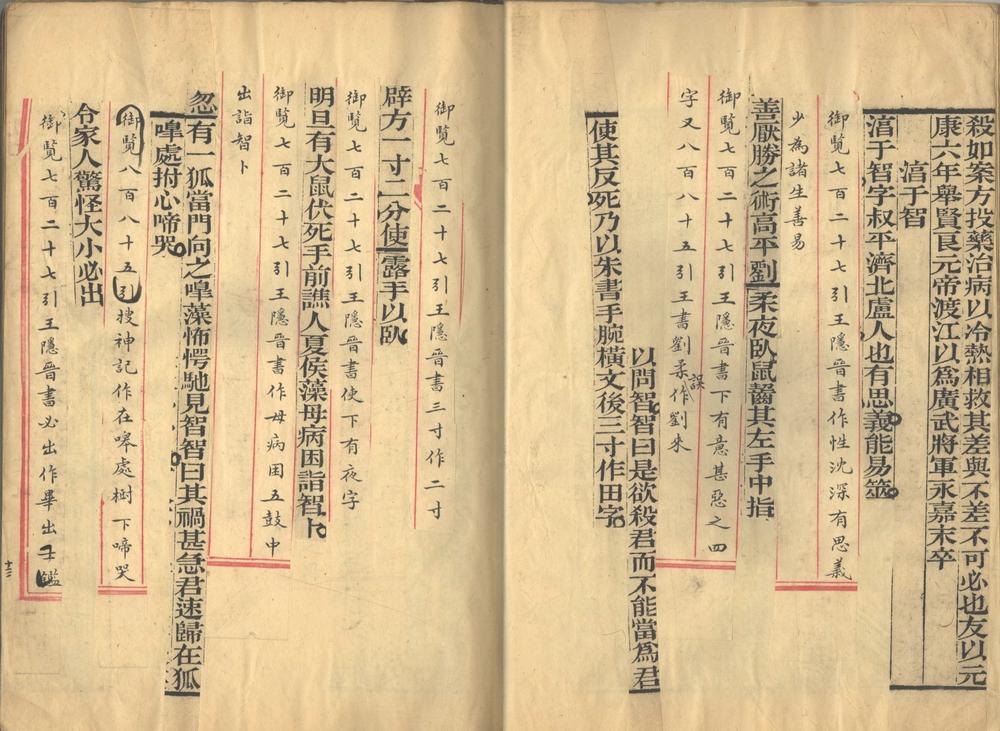 殺如案方投藥治病以冷熱相救其差與不差不可必也友以元
康六年舉賢良元帝渡江以爲廣武將軍永嘉末卒
淳于智
淳于智字叔平濟北盧人也有思義能易筮
御覽七百二十七引王隱晉書作性沈深有思義
少為諸生善易
善厭勝之術高平劉柔夜臥鼠齧其左手中指
御覽七百二十七引王隱晉書下有意甚惡之四
字又八百八十五引王書劉柔誤作劉來
以問智智曰是欲殺君而不能當爲君
使其反死乃以朱書手腕橫文後三寸作田字
御覽七百二十七引王隱晉書三寸作二寸
辟方一寸二分使露手以臥
御覽七百二十七引王隱晉書使下有夜字
明旦有大鼠伏死手前譙人夏侯藻母病困詣智卜
御覽七百二十七引王隱晉書作母病困五鼓中
出詣智卜
忽有一狐當門向之嘷藻怖愕馳見智智曰其禍甚急君速歸在狐
嘷處拊心啼哭
御覽八百八十五引搜神記作在嘷處樹下啼哭
令家人驚怪大小必出
御覽七百二十七引王隱晉書必出作畢出
十三